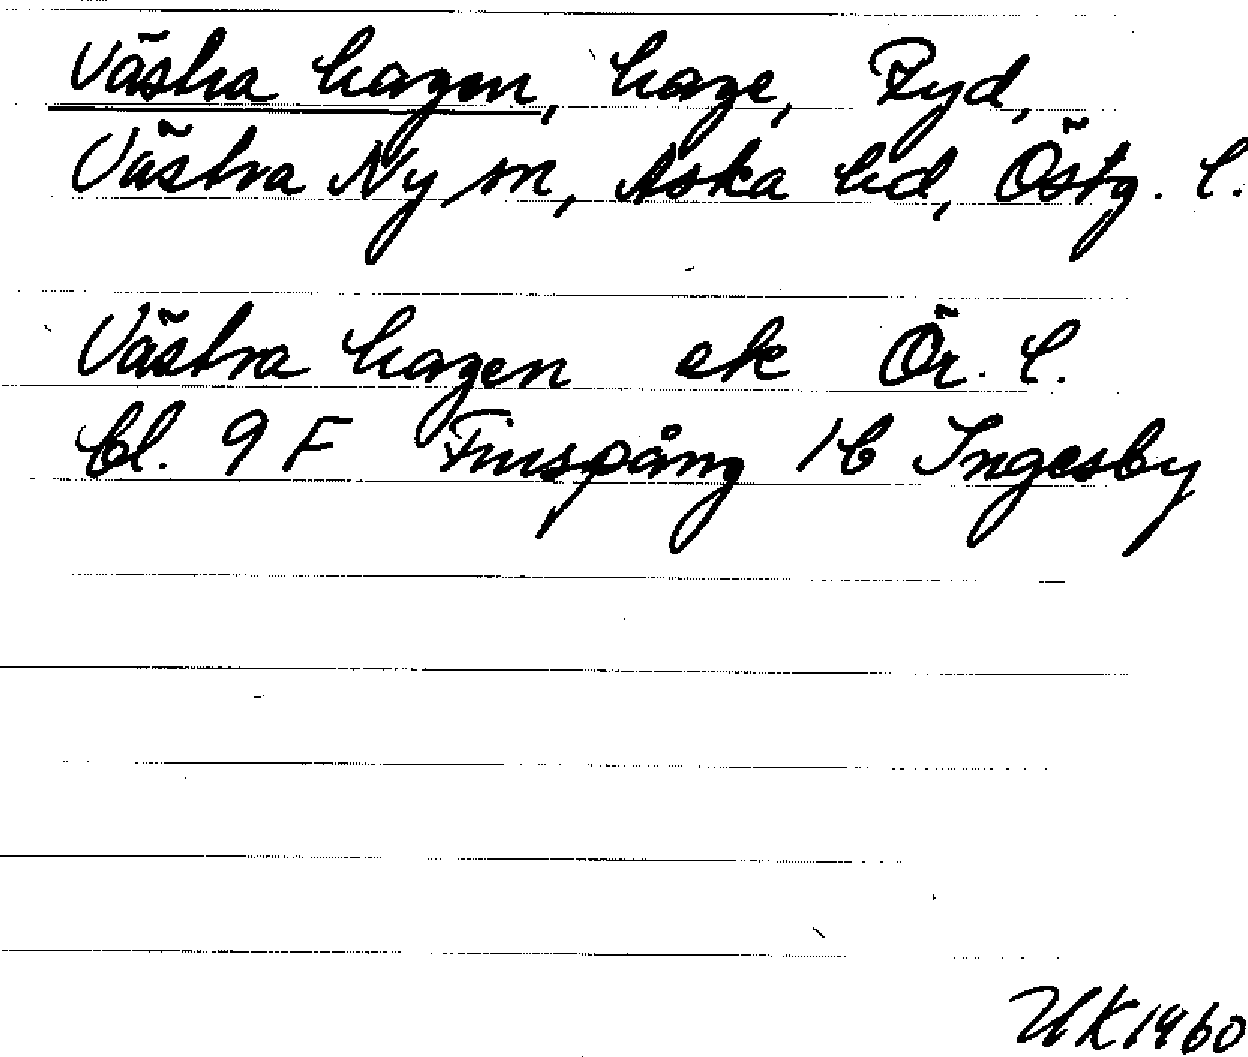 Västra hagen, hage, Ryd,
Västra Ny sn, Aska hd, Östg. l.
Västra hagen ek Ör. l.
bl. 9 F Finspång 1b Ingesby
UK 1960